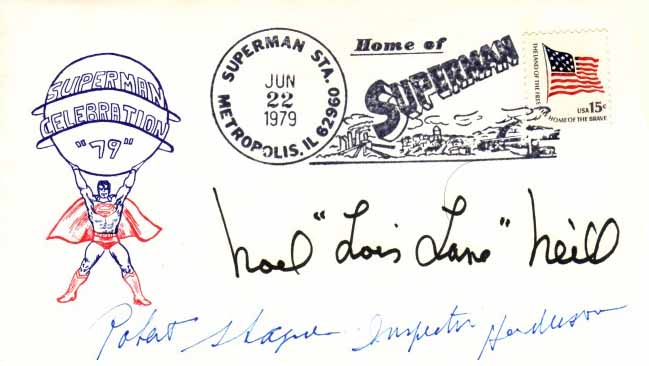 SUPERMAN
CELEBRATION
"79"
SUPERMAN STA.
JUN
22
1979
METROPOLIS, IL 62960
Home of
SUPERMAN
THE LAND OF THE FREE
USA 15c
HOME OF THE BRAVE
Noel "Lois Lane" Neill
Robert Shayne Inspector Henderson